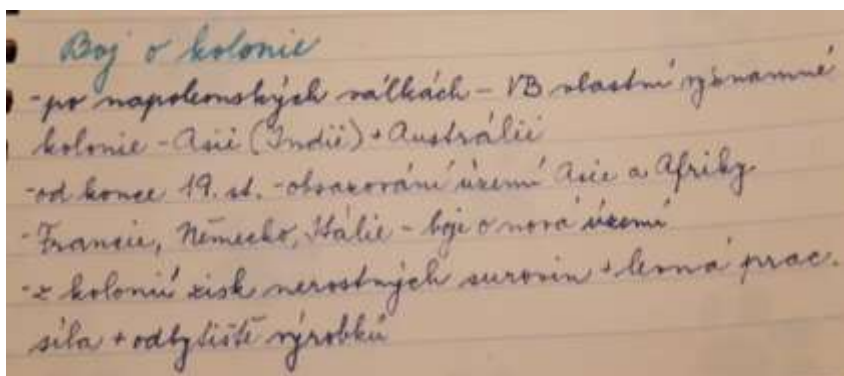 Boj o kolonie
-po napoleonských válkách - VB vlastní významné
kolonie - Asii (Indii) + Austrálii
-od konce 19. st. - obsazování území Asie a Afriky
-Francie, Německo, Itálie - boje o nová území
-z kolonií zisk nerostných surovin + levná prac.
síla + odbytiště výrobků